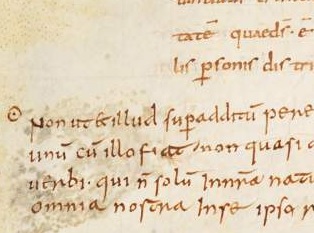 tatē quaedā· ē
lis ꝑsonis distri
non ut &illud suꝑadditū pene
unū cū illo fiat non quasi a
uerbi· qui n̄ solū In nr̄a natu
omnia nostra Inse ipso n